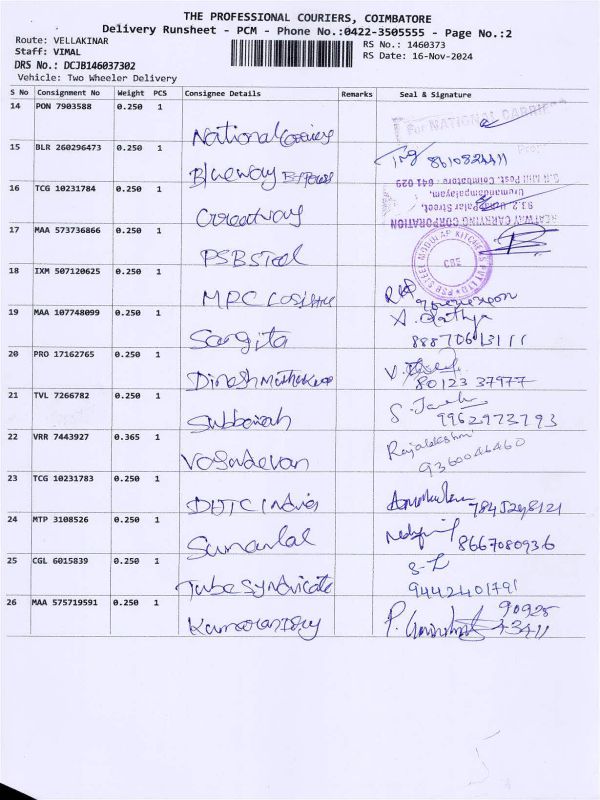 THE PROFESSIONAL COURIERS, COIMBATORE
Delivery Runsheet - PCM - Phone No.:0422-3505555 - Page No.:2
Route: VELLAKINAR
RS No.: 1460373
Staff: VIMAL
RS Date: 16-Nov-2024
DRS No.: DCJB146037302
Vehicle: Two Wheeler Delivery
S No Consignment No Weight PCS Consignee Details Remarks Seal & Signature
14 PON 7903588 0.250 1
For NATIONAL CARRIER
National
15 BLR 260296473 0.250 1
Blueway
16 TCG 10231784 0.250 1
S.R.Mill Post, Coimbatore - 641 029
Urumandampalayam,
Palar Street,
CARRYING CORPORATION
17 MAA 573736866 0.250 1
PSB STEEL MODULAR KITCHENS PVT LTD
CBE
PSB Steel
18 IXM 507120625 0.250 1
MPC
19 MAA 107748099 0.250 1
Sangita
20 PRO 17162765 0.250 1
Dinesh
80123 37977
21 TVL 7266782 0.250 1
Subbaiah
9962973793
22 VRR 7443927 0.365 1
Rajalakshmi
Vasudevan 9360046460
23 TCG 10231783 0.250 1
India
24 MTP 3108526 0.250 1
8667080936
25 CGL 6015839 0.250 1
Tube Syndicate 9442401791
26 MAA 575719591 0.250 1
P.